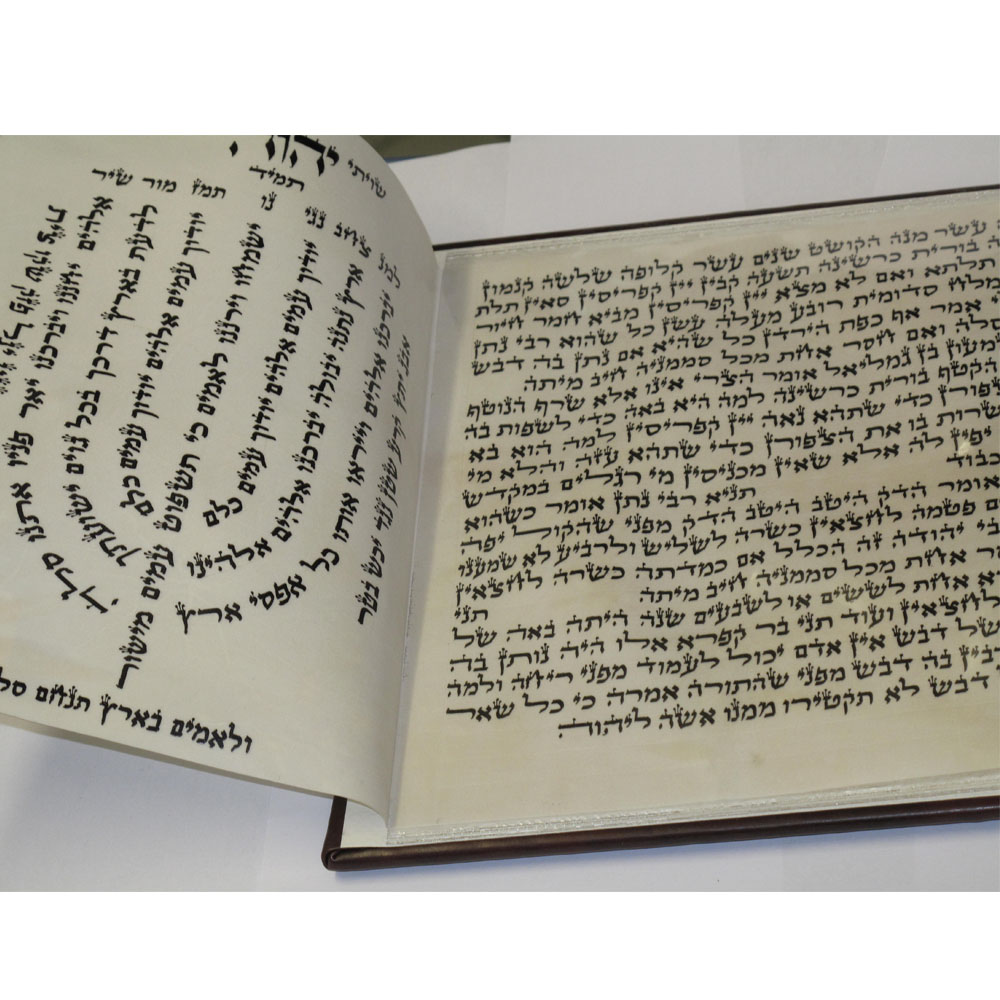 עשר מנה הקושט שנים עשר קלופה שלשה קנמון
בורית כרשינה תשעה קבין יין קפריסין סאין תלת
תלתא ואם לא מצא יין קפריסין מביא חמר חיור
מלח סדומית רובע מעלה עשן כל שהוא רבי נתן
אמר אף כפת הירדן כל שהיא אם נתן בה דבש
סלה ואם חסר אחת מכל סממניה חיב מיתה
שמעון בן גמליאל אומר הצרי אינו אלא שרף הנוטף
הקטף בורית כרשינה למה היא באה כדי לשפות בה
צפורן כדי שתהא נאה יין קפריסין למה הוא בא
שרות בו את הצפורן כדי שתהא עזה והלא מי
יפין לה אלא שאין מכניסין מי רגלים במקדש
כבוד תניא רבי נתן אומר כשהוא
אומר הדק היטב היטב הדק מפני שהקול יפה
ם פטמה לחצאין כשרה לשליש ולרביע לא שמענו
בי יהודה זה הכלל אם כמדתה כשרה לחצאין
ר אחת מכל סממניה חיב מיתה תני
א אחת לששים או לשבעים שנה היתה באה של
לחצאין ועוד תני בר קפרא אלו היה נותן בה
של דבש אין אדם יכול לעמוד מפני ריחה ולמה
רבין בה דבש מפני שהתורה אמרה כי כל שאר
דבש לא תקטירו ממנו אשה ליהוה
שויתי יהוה
תמיד
למנצח בנגינות מזמור שיר
אלהים יחננו ויברכנו יאר פניו אתנו סלה
לדעת בארץ דרכך בכל גוים ישועתך
יודוך עמים אלהים יודוך עמים כלם
ישמחו וירננו לאמים כי תשפוט עמים מישור
ולאמים בארץ תנחם סל
יודוך עמים אלהים יודוך עמים כלם
ארץ נתנה יבולה יברכנו אלהים אלהינו
יברכנו אלהים וייראו אותו כל אפסי ארץ